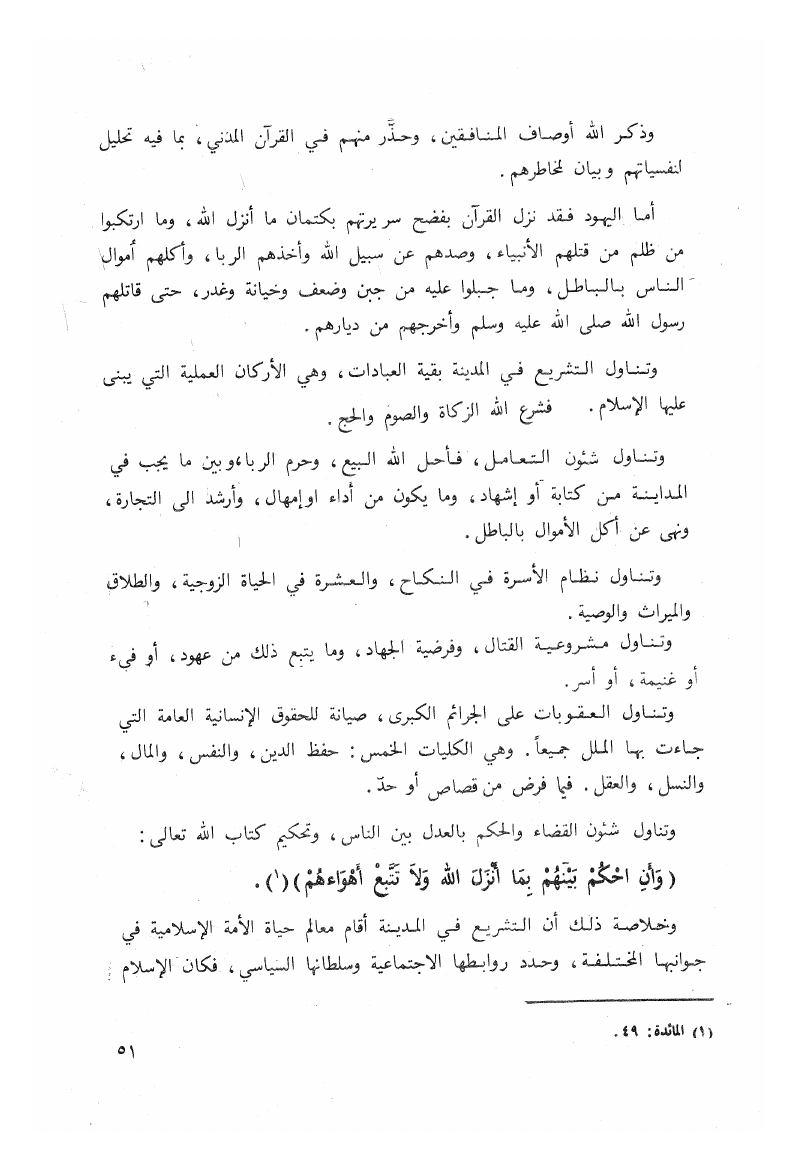 وذكر الله أوصاف المنافقين، وحذَّر منهم في القرآن المدني، بما فيه تحليل
لنفسياتهم وبيان لمخاطرهم.
أما اليهود فقد نزل القرآن بفضح سريرتهم بكتمان ما أنزل الله، وما ارتكبوا
من ظلم من قتلهم الأنبياء، وصدهم عن سبيل الله وأخذهم الربا، وأكلهم أموال
الناس بالباطل، وما جبلوا عليه من جبن وضعف وخيانة وغدر، حتى قاتلهم
رسول الله صلى الله عليه وسلم وأخرجهم من ديارهم.
وتناول التشريع في المدينة بقية العبادات، وهي الأركان العملية التي يبنى
عليها الإسلام. فشرع الله الزكاة والصوم والحج.
وتناول شئون التعامل، فأحل الله البيع، وحرم الربا،وبين ما يجب في
المداينة من كتابة أو إشهاد، وما يكون من أداء اوإمهال، وأرشد الى التجارة،
ونهى عن أكل الأموال بالباطل.
وتناول نظام الأسرة في النكاح، والعشرة في الحياة الزوجية، والطلاق
والميراث والوصية.
وتناول مشروعية القتال، وفرضية الجهاد، وما يتبع ذلك من عهود، أو فىء
أو غنيمة، أو أسر.
وتناول العقوبات على الجرائم الكبرى، صيانة للحقوق الإنسانية العامة التي
جاءت بها الملل جميعاً. وهي الكليات الخمس: حفظ الدين، والنفس، والمال،
والنسل، والعقل. فيما فرض من قصاص أو حدّ.
وتناول شئون القضاء والحكم بالعدل بين الناس، وتحكيم كتاب الله تعالى:
(وَأَنِ احْكُمْ بَيْنَهُمْ بِمَا أَنْزَلَ الله وَلاَ تَتَّبِعْ أَهْوَاءهُمْ)(١).
وخلاصة ذلك أن التشريع في المدينة أقام معالم حياة الأمة الإسلامية في
جوانبها المختلفة، وحدد روابطها الاجتماعية وسلطانها السياسي، فكان الإسلام
(١) المائدة: ٤٩.
٥١